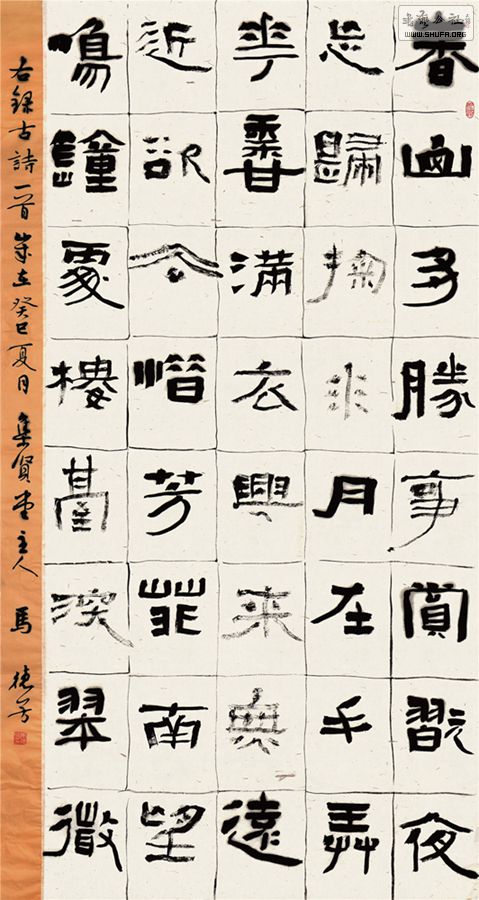 书法公社
WWW.SHUFA.ORG
春山多勝事賞翫夜
忘歸掬水月在手弄
花香滿衣興來無遠
近欲去惜芳菲南望
鳴鐘處樓臺深翠微
右録古詩一首歲在癸巳夏月集賢堂主人馬德芳